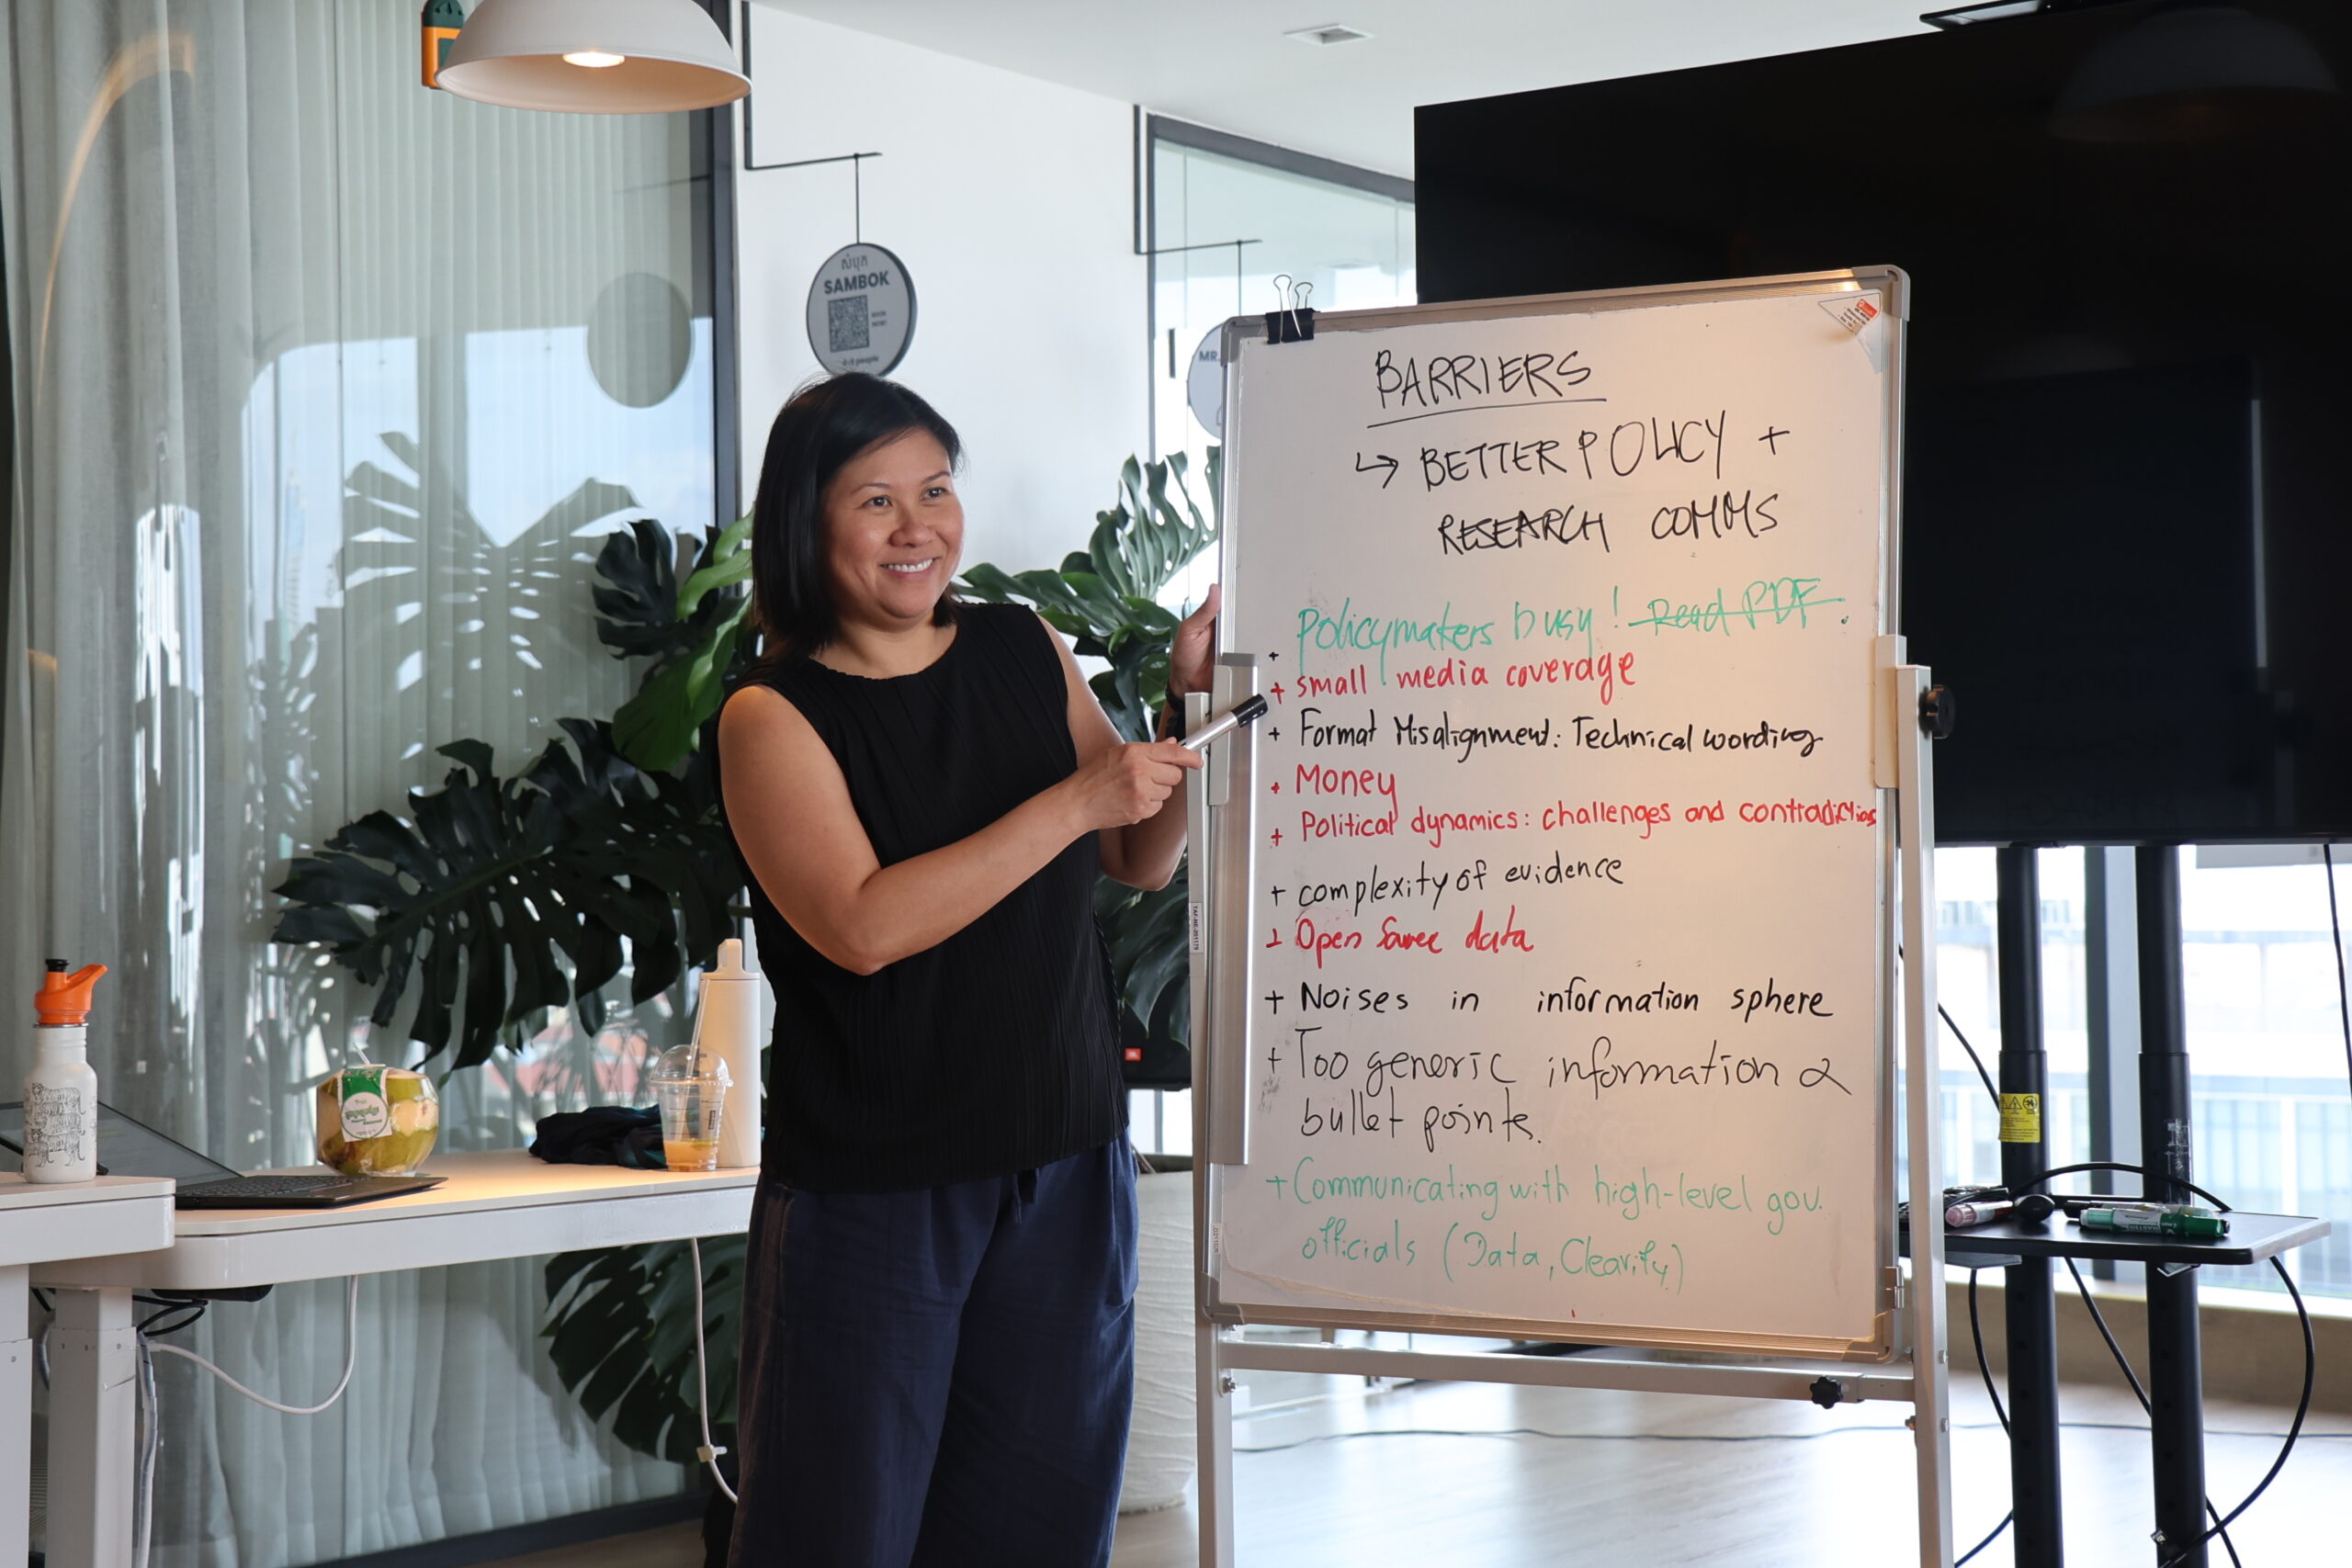 សំបុក
SAMBOK
BOOK
NOW!
4-6 people
MR.
BARRIERS
↳ BETTER POLICY +
RESEARCH COMMS
+ Policymakers busy! Read PDF.
+ small media coverage
+ Format Misalignment: Technical wording
+ Money
+ Political dynamics: challenges and contradictions
+ complexity of evidence
+ Open Source data
+ Noises in information sphere
+ Too generic information &
bullet points.
+ Communicating with high-level gov.
officials (Data, Clearity)
JBL